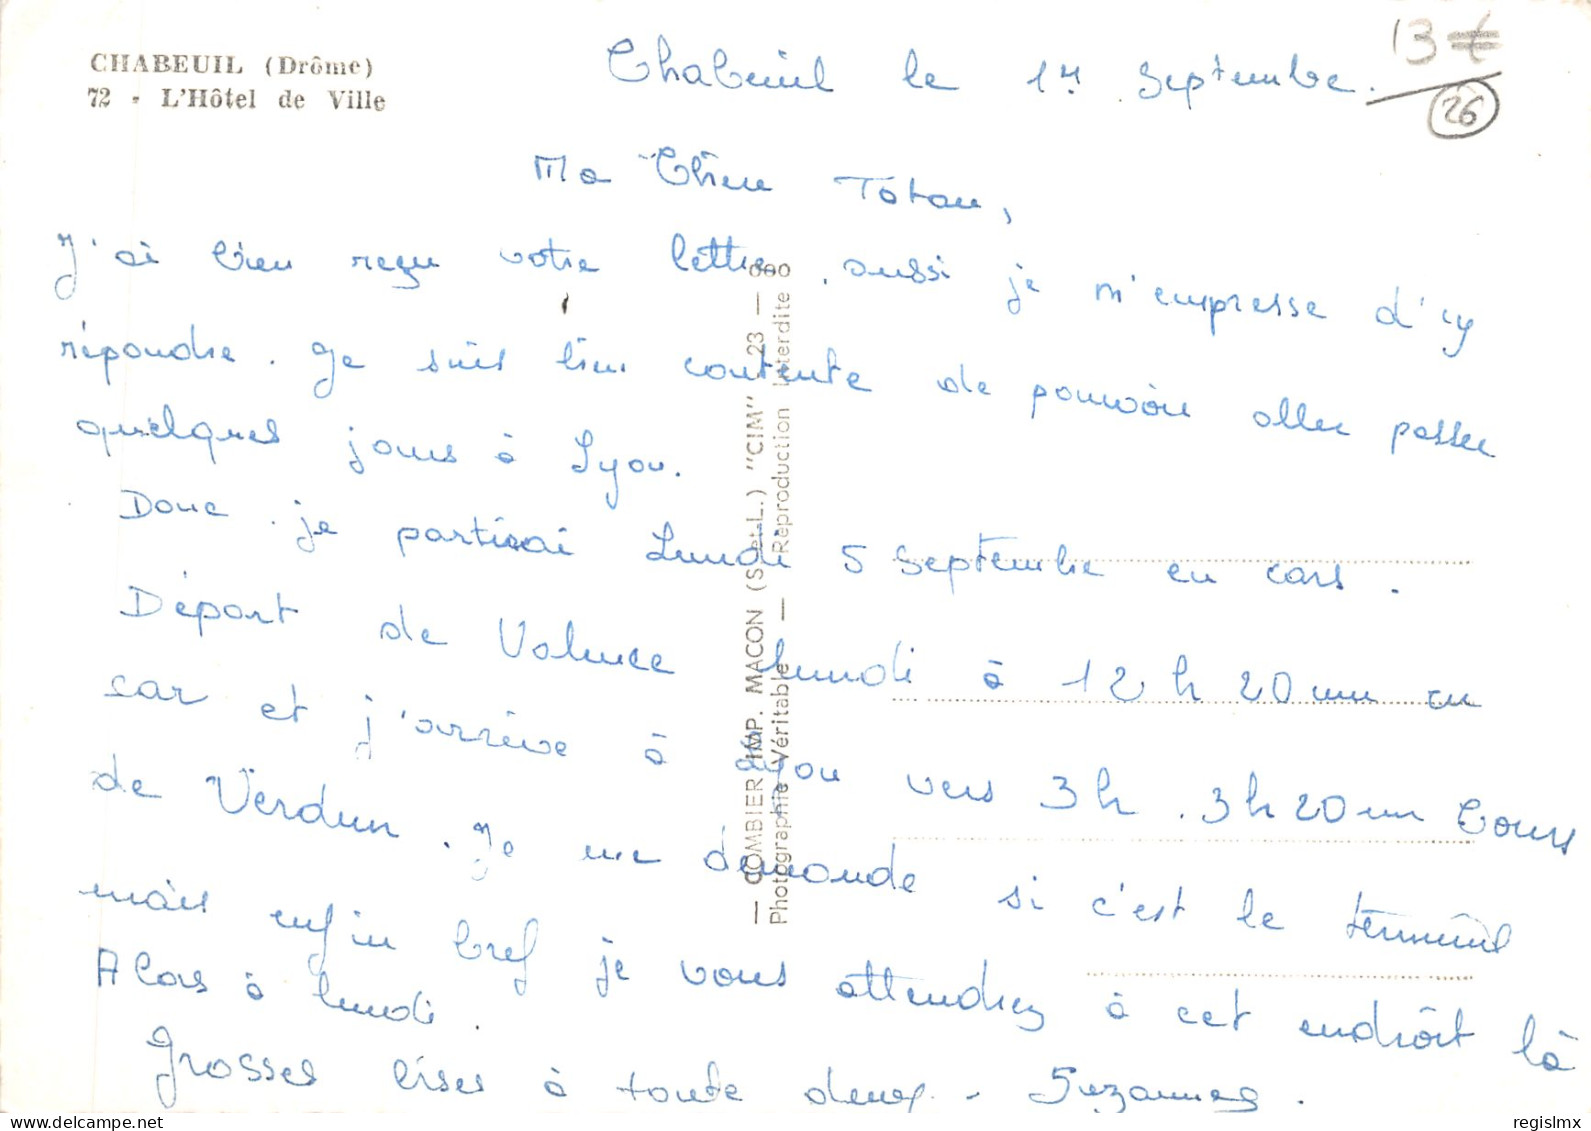 CHABEUIL (Drôme)
72 - L'Hôtel de Ville
13 €
26
Chabeuil le 1er Septembre.
Ma Chère Tatan,
J'ai bien reçu votre lettre, aussi je m'empresse d'y
répondre. Je suis bien contente de pouvoir aller passer
quelques jours à Lyon.
Donc je partirai Lundi 5 Septembre en cars.
Départ de Valence lundi à 12 h 20 mn en
car et j'arrive à Lyon vers 3h. 3h20 mn Cours
de Verdun. Je me demande si c'est le terminus
mais enfin bref je vous attendrez à cet endroit là
Alors à lundi.
Grosses bises à toute deux. - Suzanne.
— COMBIER IMP. MACON (S.-et-L.) "CIM" 23 —
Photographie Véritable — Reproduction Interdite
regislmx
www.delcampe.net